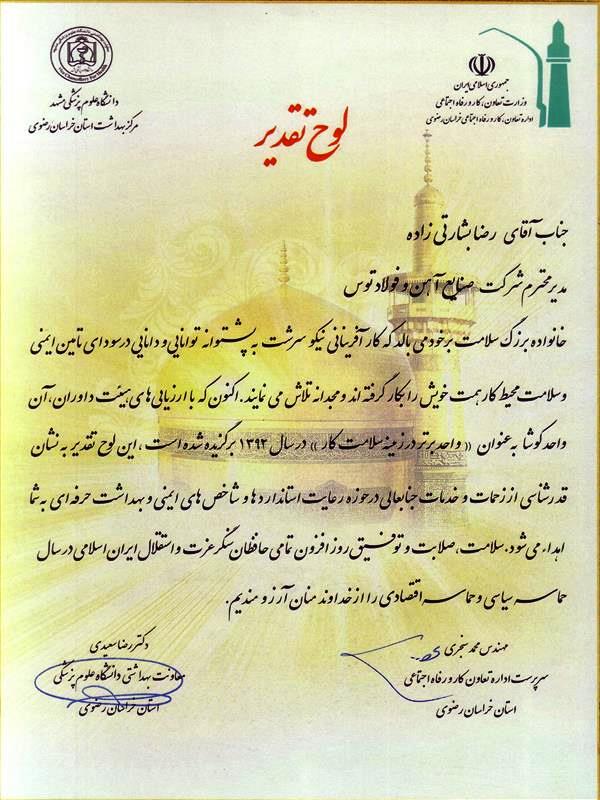 جمهوری اسلامی ایران
وزارت تعاون، کار و رفاه اجتماعی
اداره تعاون، کار و رفاه اجتماعی خراسان رضوی
دانشگاه علوم پزشکی مشهد
مرکز بهداشت استان خراسان رضوی
لوح تقدیر
جناب آقای رضا بشارتی زاده
مدیر محترم شرکت صنایع آهن و فولاد توس
خانواده بزرگ سلامت بر خود می بالد که کارآفرینانی نیکو سرشت به پشتوانه توانایی و دانایی در سودای تامین ایمنی
و سلامت محیط کار همت خویش را بکار گرفته اند و مجدانه تلاش می نمایند. اکنون که با ارزیابی های هیئت داوران، آن
واحد کوشا به عنوان «واحد برتر در زمینه سلامت کار» در سال ۱۳۹۲ برگزیده شده است، این لوح تقدیر به نشان
قدرشناسی از زحمات و خدمات جنابعالی در حوزه رعایت استانداردها و شاخص های ایمنی و بهداشت حرفه ای به شما
اهداء می شود. سلامت، صلابت و توفیق روز افزون تمامی حافظان سنگر عزت و استقلال ایران اسلامی در سال
حماسه سیاسی و حماسه اقتصادی را از خداوند منان آرزومندیم.
مهندس محمد سنجری
سرپرست اداره تعاون کار و رفاه اجتماعی
استان خراسان رضوی
دکتر رضا سعیدی
معاونت بهداشتی دانشگاه علوم پزشکی
استان خراسان رضوی